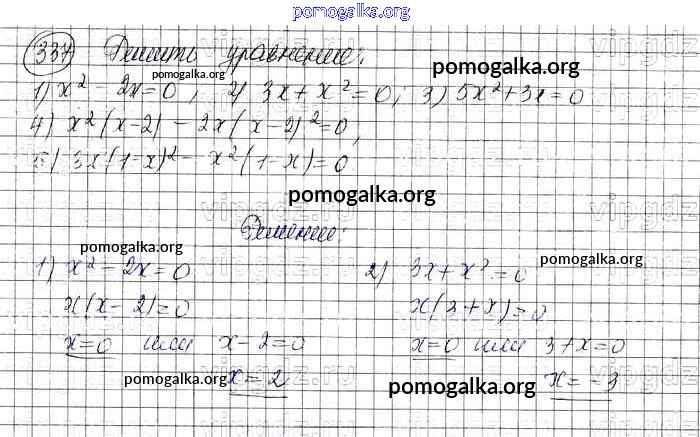 pomogalka.org
337 Решить уравнение:
pomogalka.org
pomogalka.org
1) x² - 2x = 0, 2) 3x + x² = 0; 3) 5x² + 3x = 0
4) x²(x-2) - 2x(x-2)² = 0,
5) 3x(1-x)² - x²(1-x) = 0
pomogalka.org
vipgdz.ru
Решение:
pomogalka.org
pomogalka.org
1) x² - 2x = 0 2) 3x + x² = 0
x(x-2) = 0 x(3+x) = 0
x=0 или x-2=0 x=0 или 3+x=0
pomogalka.org
pomogalka.org
x=2 x=-3